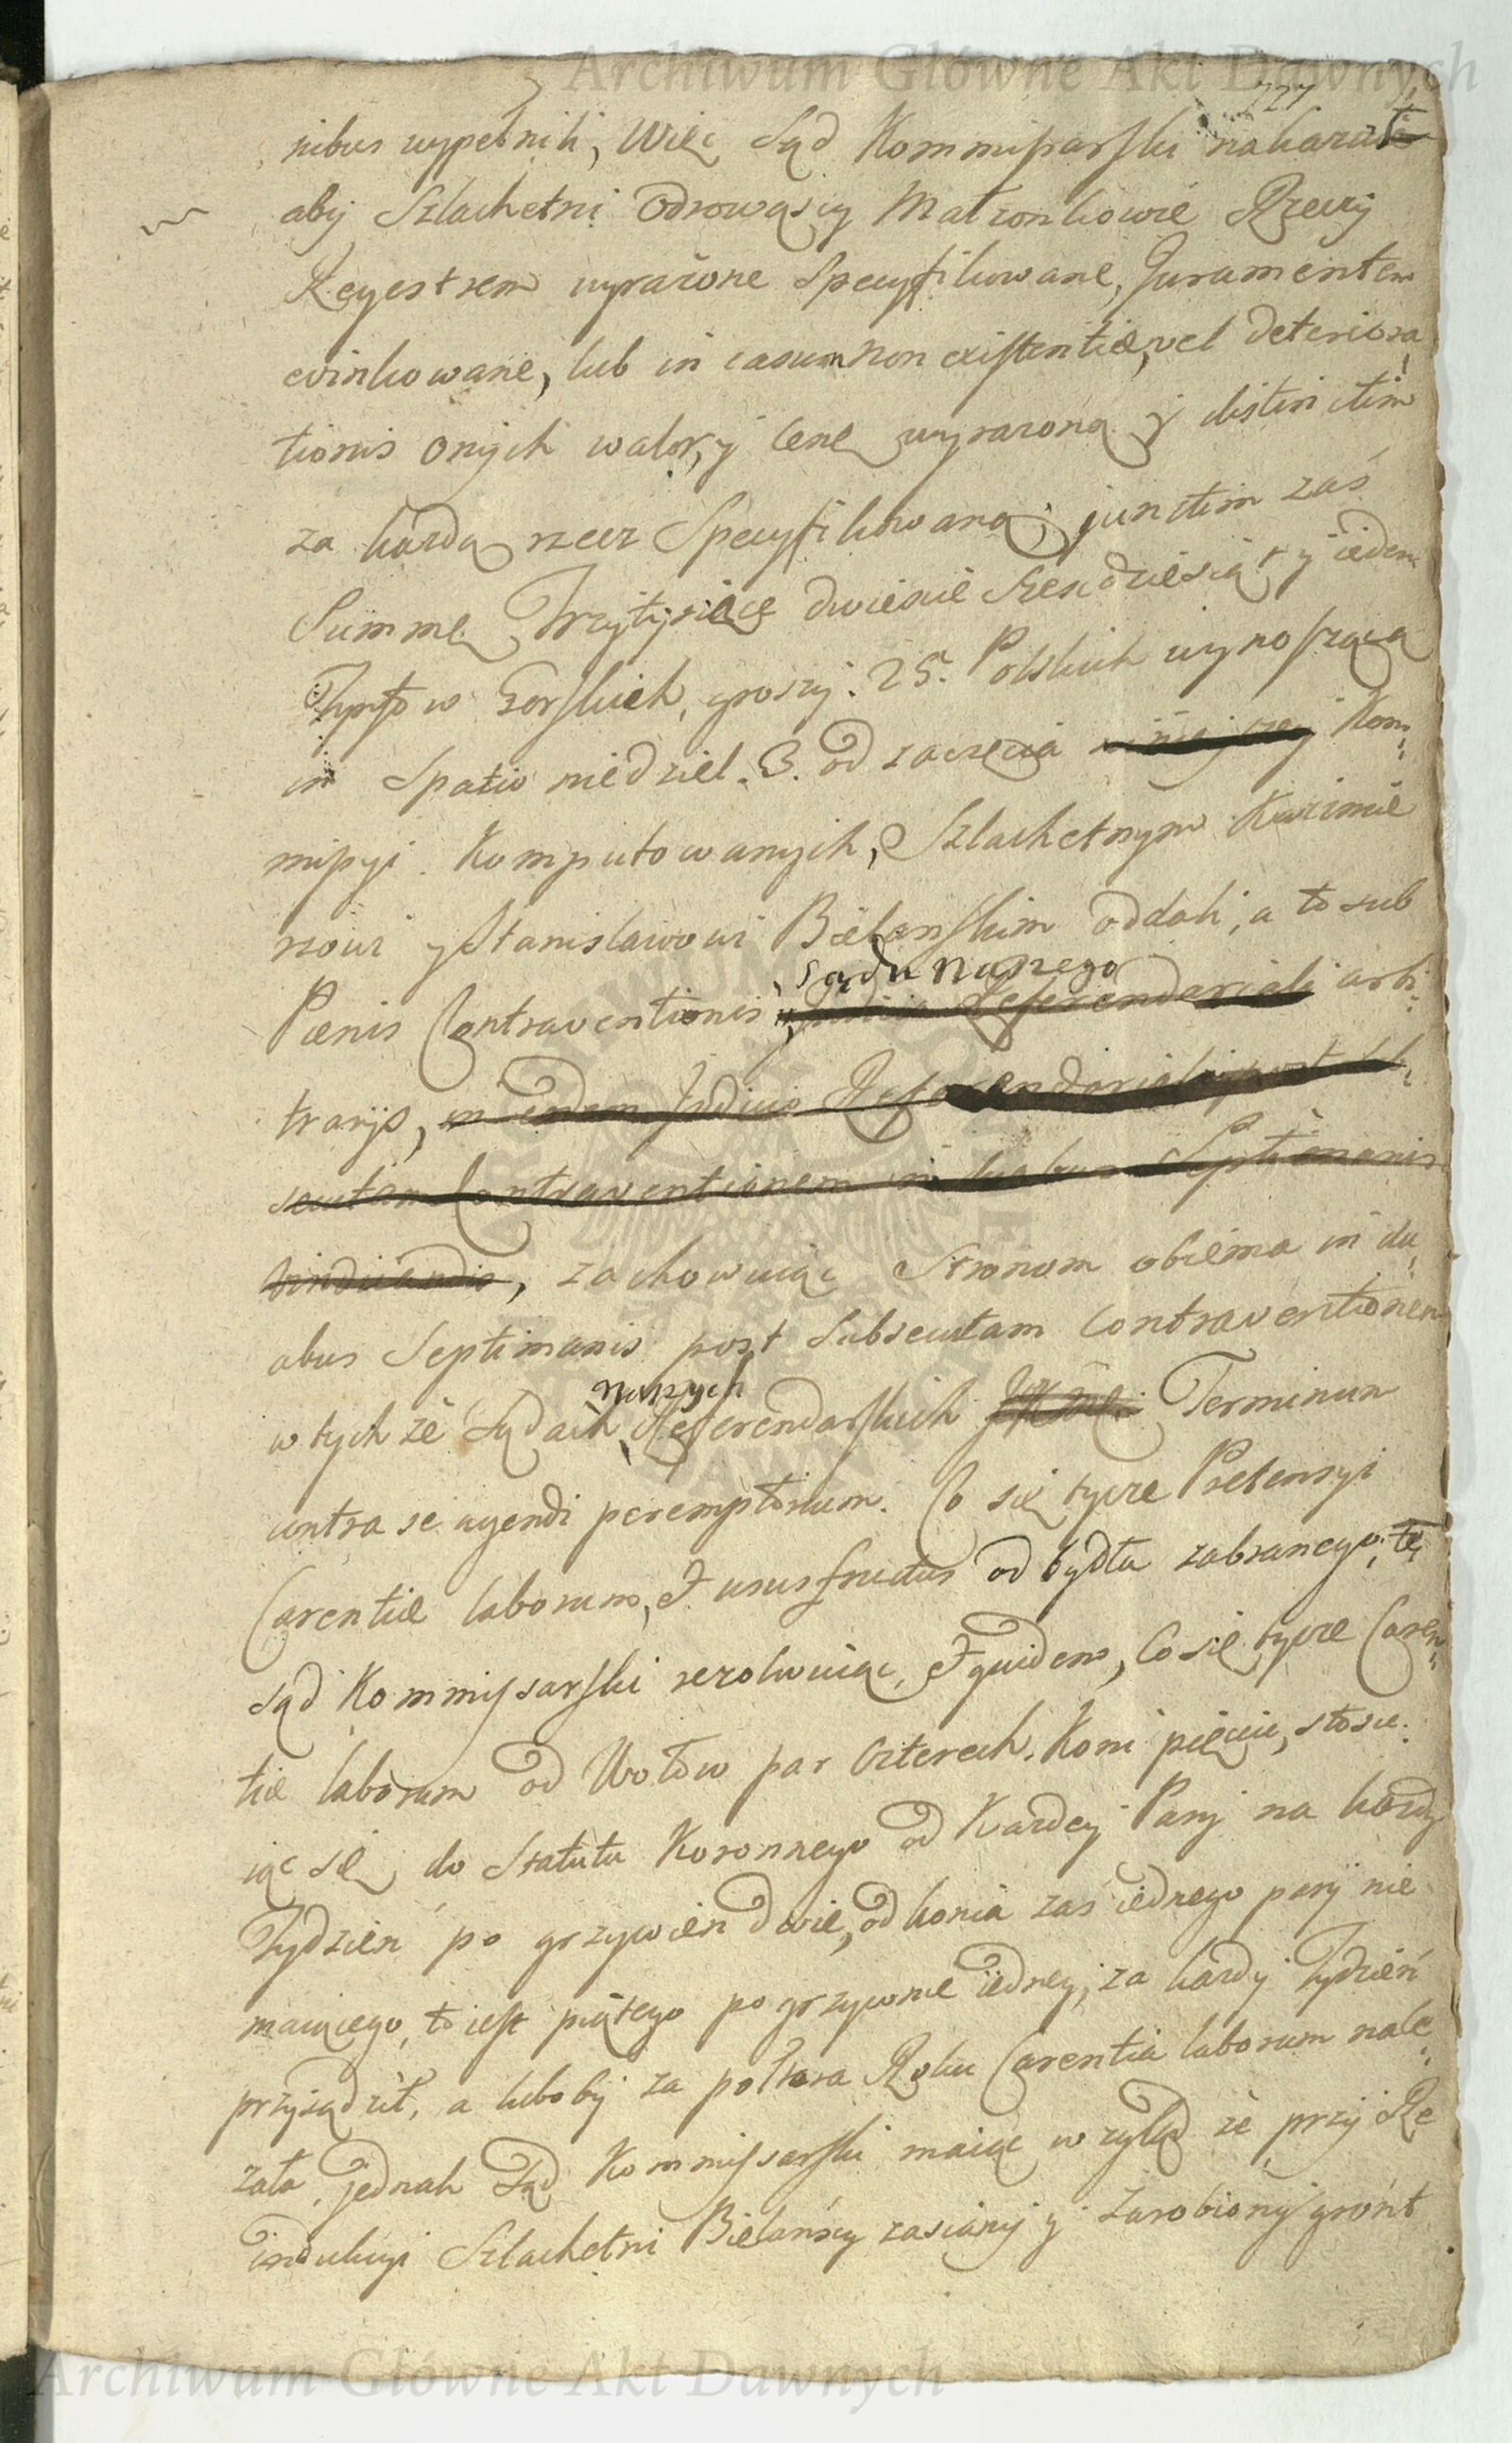 Archiwum Główne Akt Dawnych
727
nibus wypełnili, Więc Sąd Kommissarski nakazał
aby Szlachetni Odrowąscy Małzonkowie Rzeczy
Regestrem wyrażone Specyfikowane, Juramentem
ewinkowane, lub in casum non existentiæ, vel deteriora-
tionis onych walor, y cenę wyrazoną y distinctim
za każdą rzecz Specyfikowaną; junctim zaś
Summę Trzytysiące dwieście Sześcdziesiąt y ieden
Tynfow Gorskich, groszy. 25. Polskich wynoszącą
in Spatio niedziel. 3. od zaczęcia ninieyszey Kom-
missyi Komputowanych, Szlachetnym Kazimie
rzowi y Stanisławowi Bielanskim oddali, a to sub
Sądu Naszego
Pœnis Contraventionis Judicii Referendarialis arbi-
trarijs, in eodem Judicio Referendariali post sub-
secutam Contraventionem in duabus Septimanis
vindicandis, zachowuiąc Stronom obiema in du-
abus Septimanis post Subsecutam Contraventionem
Naszych
w tych ze Sądach Referendarskich Terminum
contra se agendi peremptorium. Co się tycze Pretensyi
Carentiæ laborum, et ususfructus od bydła zabranego, tę
Sąd Kommissarski rezolwuiąc, et quidem, Co się tycze Caren-
tiæ laborum od Wołow par czterech, Koni pięciu, stosu-
iąc się do Statutu Koronnego od Kazdey Pary na każdy
Tydzień po grzywien dwie, od konia zaś iednego pary nie
maiącego, to iest piątego po grzywnie iedney, za każdy Tydzień
przysądził, a luboby za połtora Roku Carentia laborum nale-
zała, jednak Sąd Kommissarski maiąc wzgląd że przy Re
indukcyi Szlachetni Bielańscy zasiany y zarobiony gront
Archiwum Główne Akt Dawnych